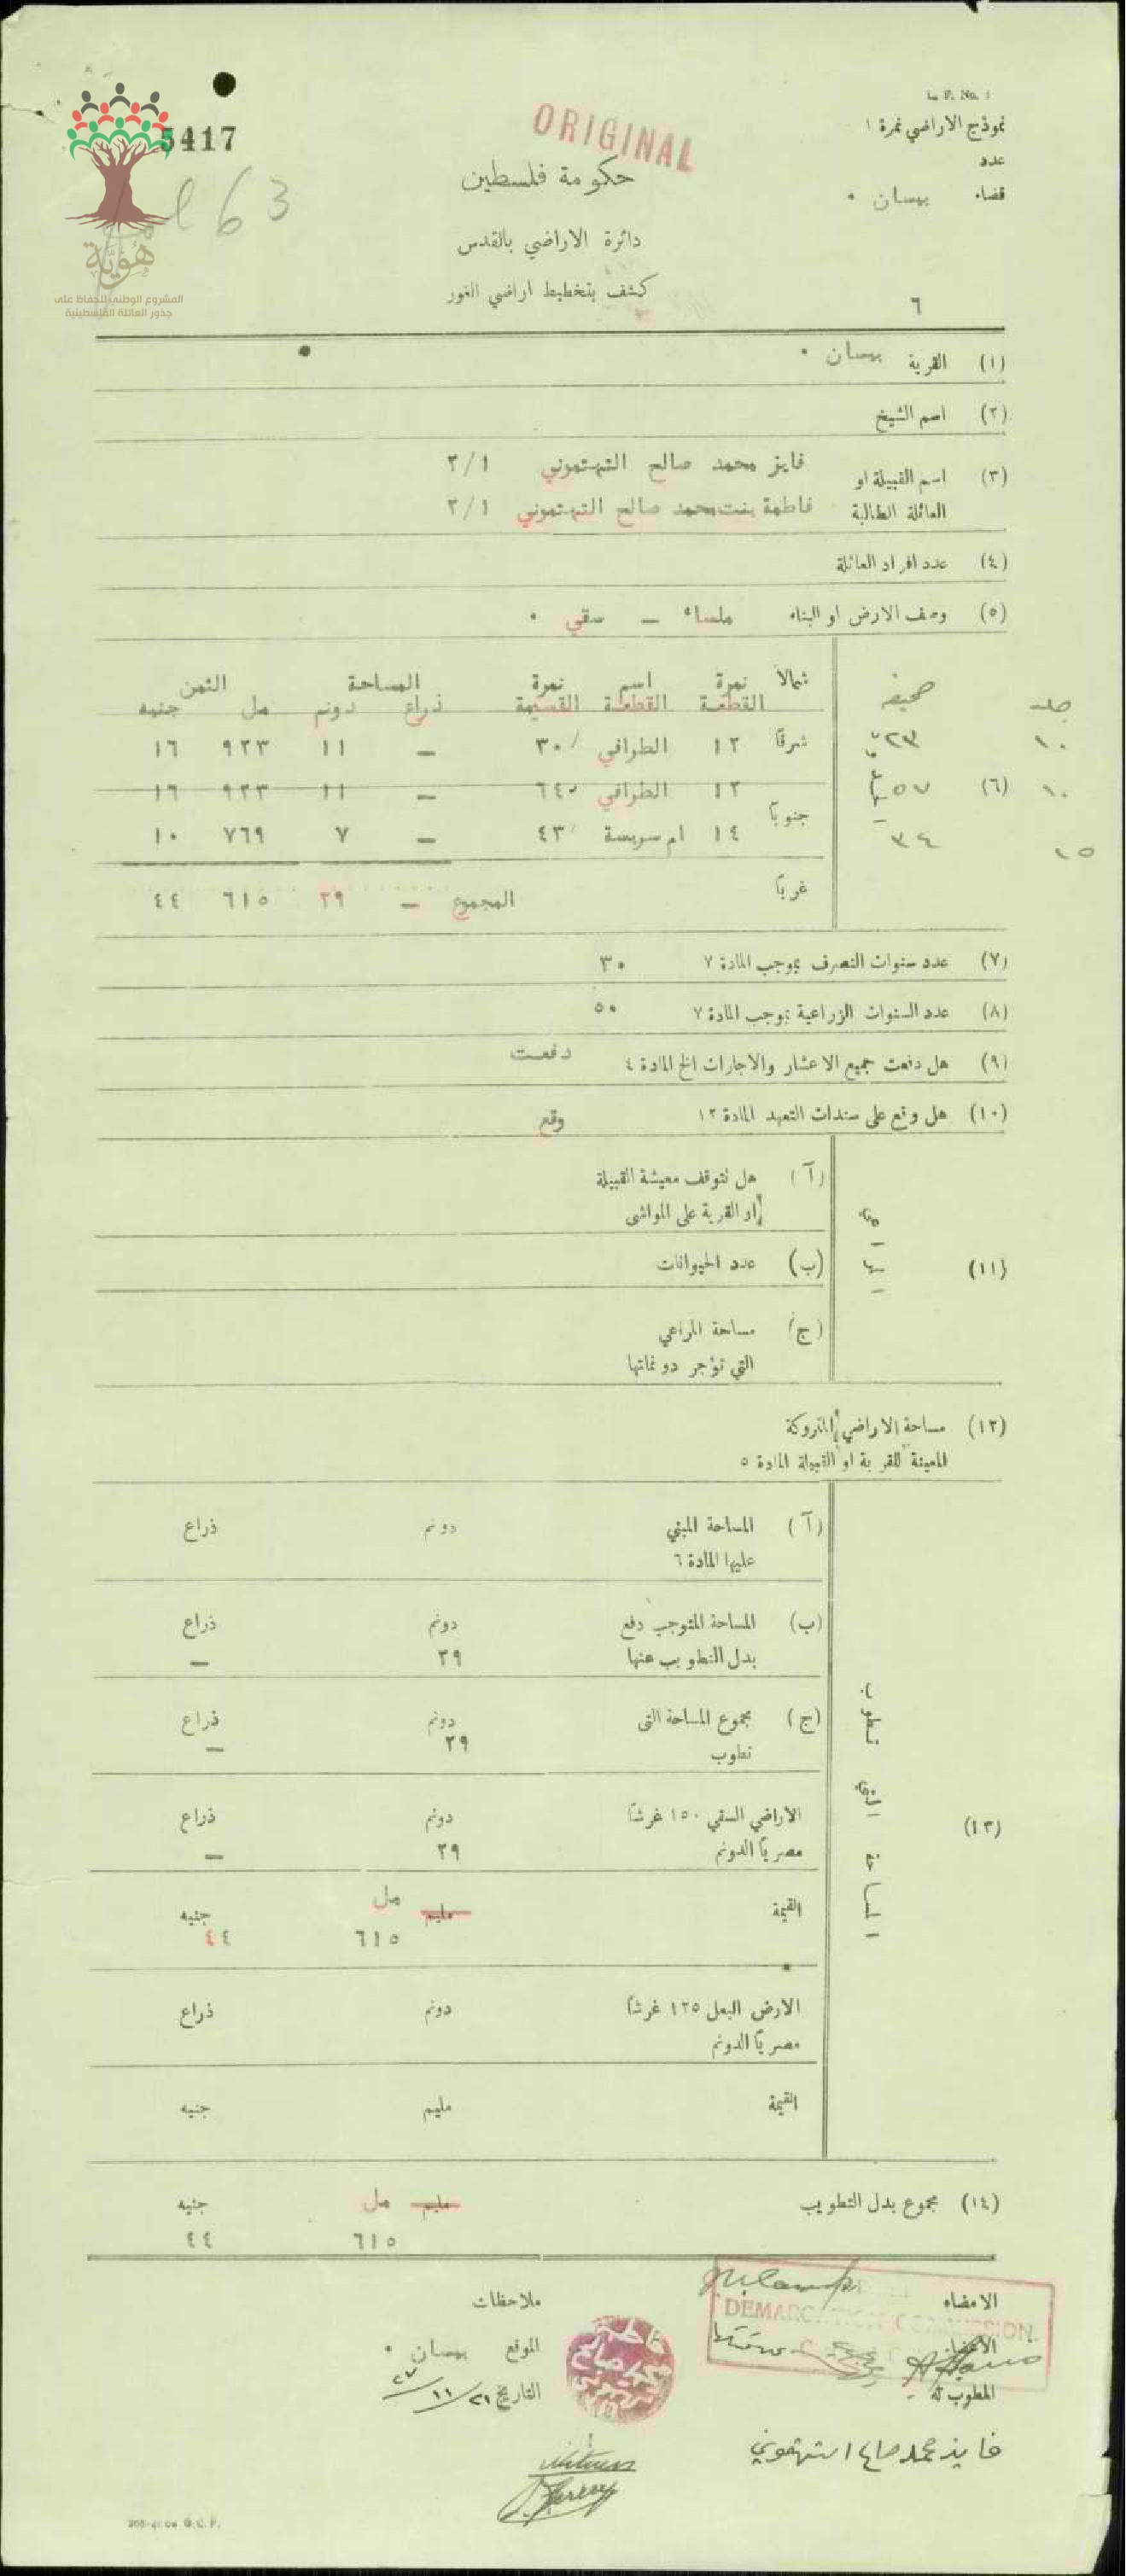 L. P. No. 1
نموذج الاراضي نمرة ١
ORIGINAL
5417
عدد
حكومة فلسطين
قضاء بيسان .
163
دائرة الاراضي بالقدس
هوية
المشروع الوطني للحفاظ على
جذور العائلة الفلسطينية
كشف بتخطيط اراضي الغور
٦
(١) القرية بيسان .
(٢) اسم الشيخ
(٣) اسم القبيلة او العائلة الطالبة
فايز محمد صالح التهتموني ٢/١
فاطمة بنت محمد صالح التهتموني ٢/١
(٤) عدد افراد العائلة
(٥) وصف الارض او البناء ملساء — سقي .
جلد صحيفة شمالاً نمرة القطعة اسم القطعة نمرة القسيمة المساحة ذراع دونم الثمن مل جنيه
١٠ ٢٣ شرقاً ١٢ الطرافي ٣٠ — ١١ ٩٢٣ ١٦
(٦) ١٠ ٥٧ ١٢ الطرافي ٦٤ — ١١ ٩٢٣ ١٦
١٥ ٣٤ جنوباً ١٤ ام سريسة ٤٣ — ٧ ٧٦٩ ١٠
غرباً المجموع — ٢٩ ٦١٥ ٤٤
(٧) عدد سنوات التصرف بموجب المادة ٧ ٣٠
(٨) عدد السنوات الزراعية بموجب المادة ٧ ٥٠
(٩) هل دفعت جميع الاعشار والاجارات الخ المادة ٤ دفعت
(١٠) هل وقع على سندات التعهد المادة ١٢ وقع
(١١)
(آ) هل تتوقف معيشة القبيلة
او القرية على المواشى
(ب) عدد الحيوانات
(ج) مساحة المراعي
التي تؤجر دونماتها
(١٢) مساحة الاراضي المتروكة
المعينة للقرية او القبيلة المادة ٥
(١٣) المساحة التي تطوب
(آ) المساحة المبني دونم ذراع
عليها المادة ٦
(ب) المساحة المتوجب دفع دونم ذراع
بدل التطويب عنها ٢٩ —
(ج) مجموع المساحة التى دونم ذراع
تطوب ٢٩ —
الاراضي السقي ١٥٠ غرشاً دونم ذراع
مصرياً الدونم ٢٩ —
القيمة مليم مل جنيه
٦١٥ ٤٤
الارض البعل ١٢٥ غرشاً دونم ذراع
مصرياً الدونم
القيمة مليم جنيه
(١٤) مجموع بدل التطويب مليم مل جنيه
٦١٥ ٤٤
الامضاء ملاحظات
DEMARCATION COMMISSION.
الموقع بيسان .
التاريخ ٢١/١١/٢٧
المطوب له
فايز محمد صالح التهتموني
Witness